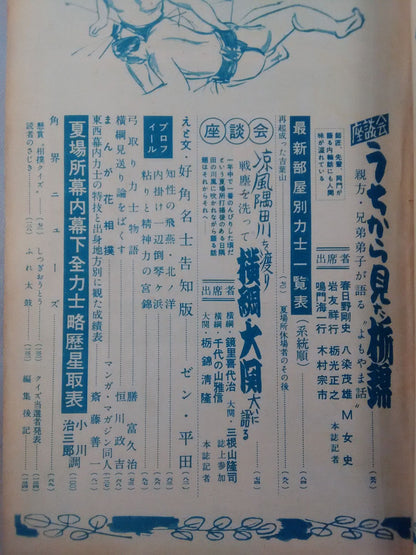 座談会
うちから見た栃錦
親方・兄弟弟子が語る "よもやま話"
師匠、先輩、同門が
語る内輪話にも人間
味が溢れている
出席者
春日野剛史
八染茂雄
M女史
岩友祥行
栃光正之
鳴門海一行
木村宗市
最新部屋別力士一覧表(系統順)
再起成った吉葉山
夏場所休場者のその後
座談会
凉風隅田川を渡り
戦塵を洗って
横綱大関大いに語る
出席者
横綱・鏡里喜代治
大関・三根山隆司
横綱・千代の山雅信
誌上参加
大関・栃錦清隆
本誌記者
えと文・好角名士告知版
ゼン・平田
プロフイール
知性の飛燕・北洋
内掛け一辺倒琴ヶ浜
粘りと精神力の宮錦
弓取り力士物語
勝富久治
横綱見送り論をばくす
恒川政吉
まんが花相撲
マンガ・マガジン同人
東西幕内力士の特技と出身地方別に観た成績表
斎藤善一
夏場所幕内幕下全力士略歴星取表
角界ニュース
小川調
治三郎
懸賞「相撲クイズ」
しっぺおうとう
クイズ当選者発表
読者のさじき
ふれ太鼓
編集後記